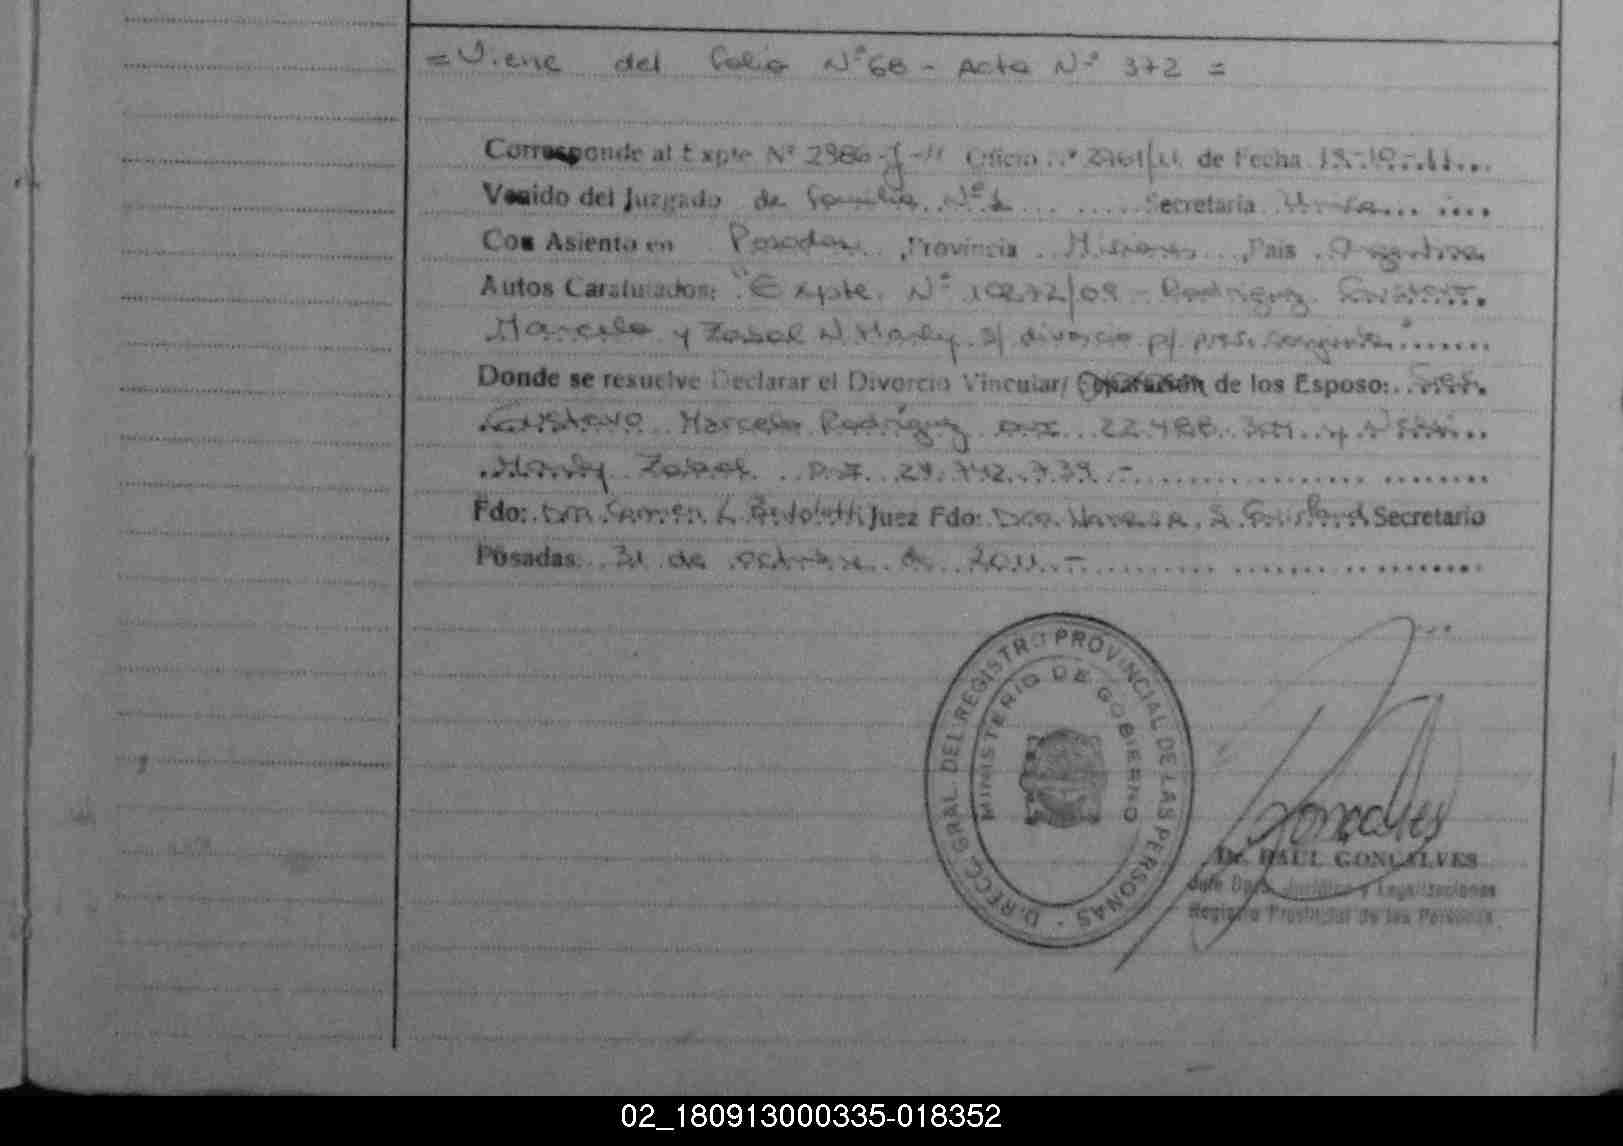 = Viene del folio Nº 68 - Acta Nº 372 =
Corresponde al Expte Nº 2986-J-11 Oficio Nº 2961/11 de Fecha 19-10-11
Venido del Juzgado de Familia Nº 1 Secretaria Unica
Con Asiento en Posadas, Provincia Misiones, Pais Argentina
Autos Caratulados: "Expte. Nº 10272/09 - Rodriguez Gustavo
Marcelo y Zabel N Marly s/ divorcio p/ pres. conjunta"
Donde se resuelve Declarar el Divorcio Vincular/ Separacion de los Esposo: Sres.
Gustavo Marcelo Rodriguez DNI 22.488. y
Marly Zabel DNI 24.742.739 -
Fdo: Dra. Carmen L. Juez Fdo: Dra. Vanessa S. Secretario
Posadas: 31 de octubre de 2011 -
DIRECC. GRAL. DEL REGISTRO PROVINCIAL DE LAS PERSONAS
MINISTERIO DE GOBIERNO
Goncalves
Dr. RAUL GONCALVES
Jefe Dpto. Jurídico y Legalizaciones
Registro Provincial de las Personas
02_180913000335-018352